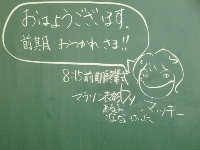 おはようございます。
前期 おつかれさま!!
8:15 前期終業式
マラソン表彰
あるよ
マッキー